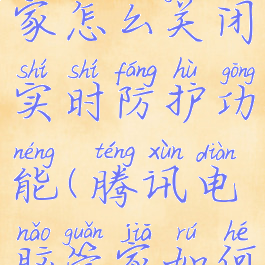 家怎么关闭
shí shí fáng hù gōng
实时防护功
néng téng xùn diàn
能(腾讯电
nǎo guǎn jiā rú hé
脑管家如何